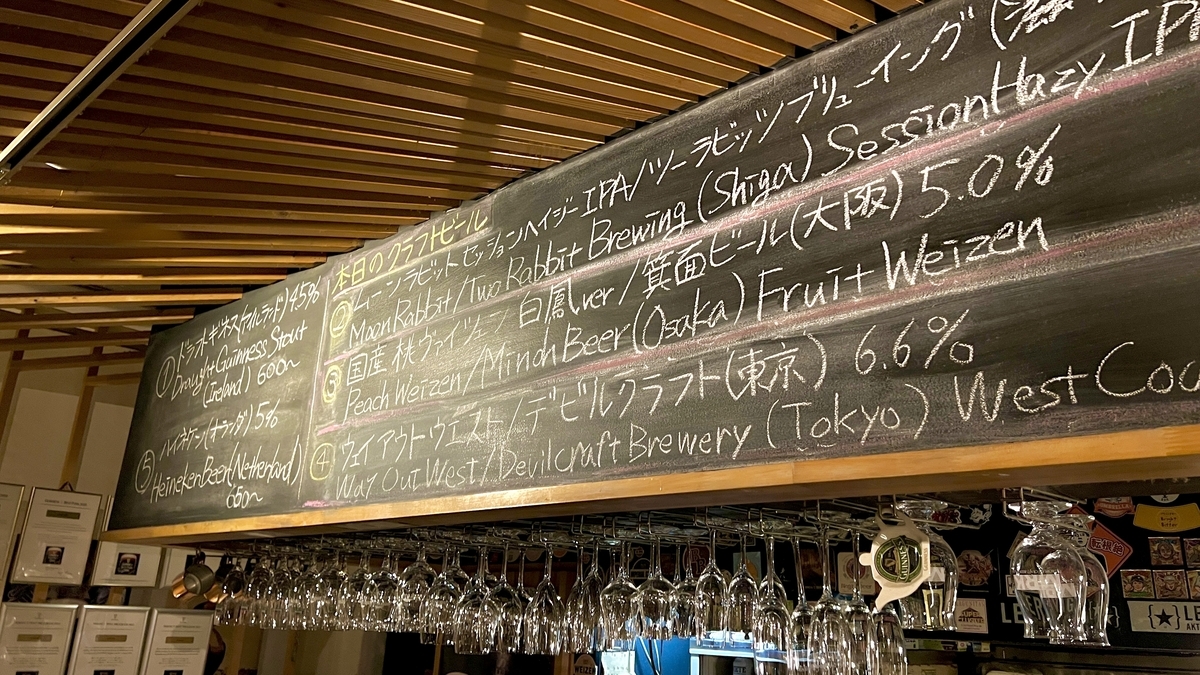 ① ドラフトギネス(アイルランド)4.5%
Draught Guinness Stout
(Ireland) 600~
⑤ ハイネケン(オランダ)5%
Heineken Beer(Netherland)
650~
本日のクラフトビール
② ムーンラビットセッションヘイジーIPA/ツーラビッツブリューイング(滋
Moon Rabbit/Two Rabbit Brewing(Shiga) Session Hazy IPA
③ 国産桃ヴァイツェン 白鳳ver/箕面ビール(大阪) 5.0%
Peach Weizen/Minoh Beer(Osaka) Fruit Weizen
④ ウェイアウトウエスト/デビルクラフト(東京) 6.6%
Way Out West/Devilcraft Brewery (Tokyo) West Coa
GUINNESS
WEIZEN